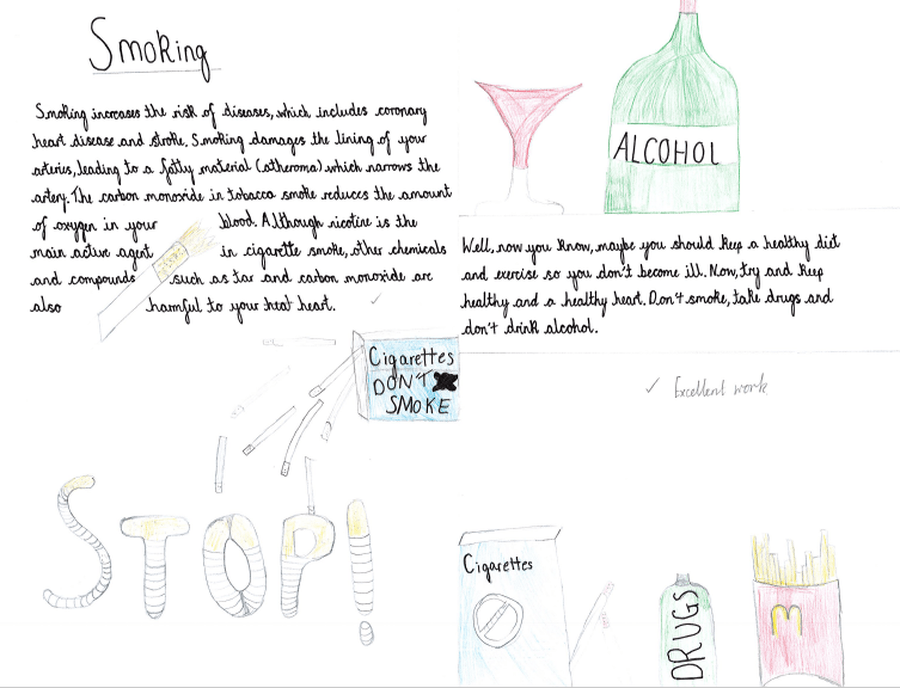 Smoking
Smoking increases the risk of diseases, which includes coronary
heart disease and stroke. Smoking damages the lining of your
arteries, leading to a fatty material (atheroma) which narrows the
artery. The carbon monoxide in tobacco smoke reduces the amount
of oxygen in your blood. Although nicotine is the
main active agent in cigarette smoke, other chemicals
and compounds such as tar and carbon monoxide are
also harmful to your heat heart.
Cigarettes
DON'T
SMOKE
STOP!
ALCOHOL
Well, now you know, maybe you should keep a healthy diet
and exercise so you don't become ill. Now, try and keep
healthy and a healthy heart. Don't smoke, take drugs and
don't drink alcohol.
✓ Excellent work
Cigarettes
DRUGS
M